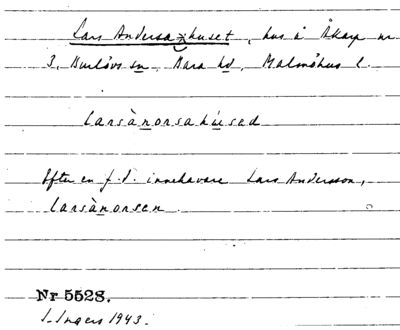 Lars Andersahuset, hus å Åkarp nr
3, Burlövs sn, Bara hd, Malmöhus l.
larsànorsahúsad
Efter en f.d. innehavare Lars Andersson,
larsànorsen.
Nr 5528.
I. Ingers 1943.